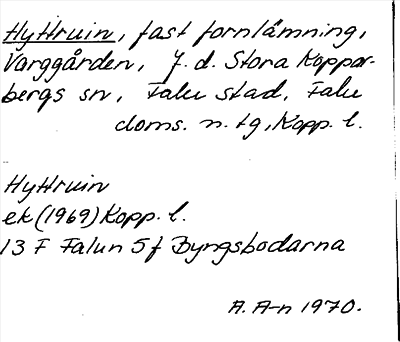 Hyttruin, fast fornlämning,
Varggården, f. d. Stora Koppar-
bergs sn, Falu stad, Falu
doms. n. tg, Kopp. l.
Hyttruin
ek (1969) Kopp. l.
13 F Falun 5f Byngsbodarna
A. A-n 1970.